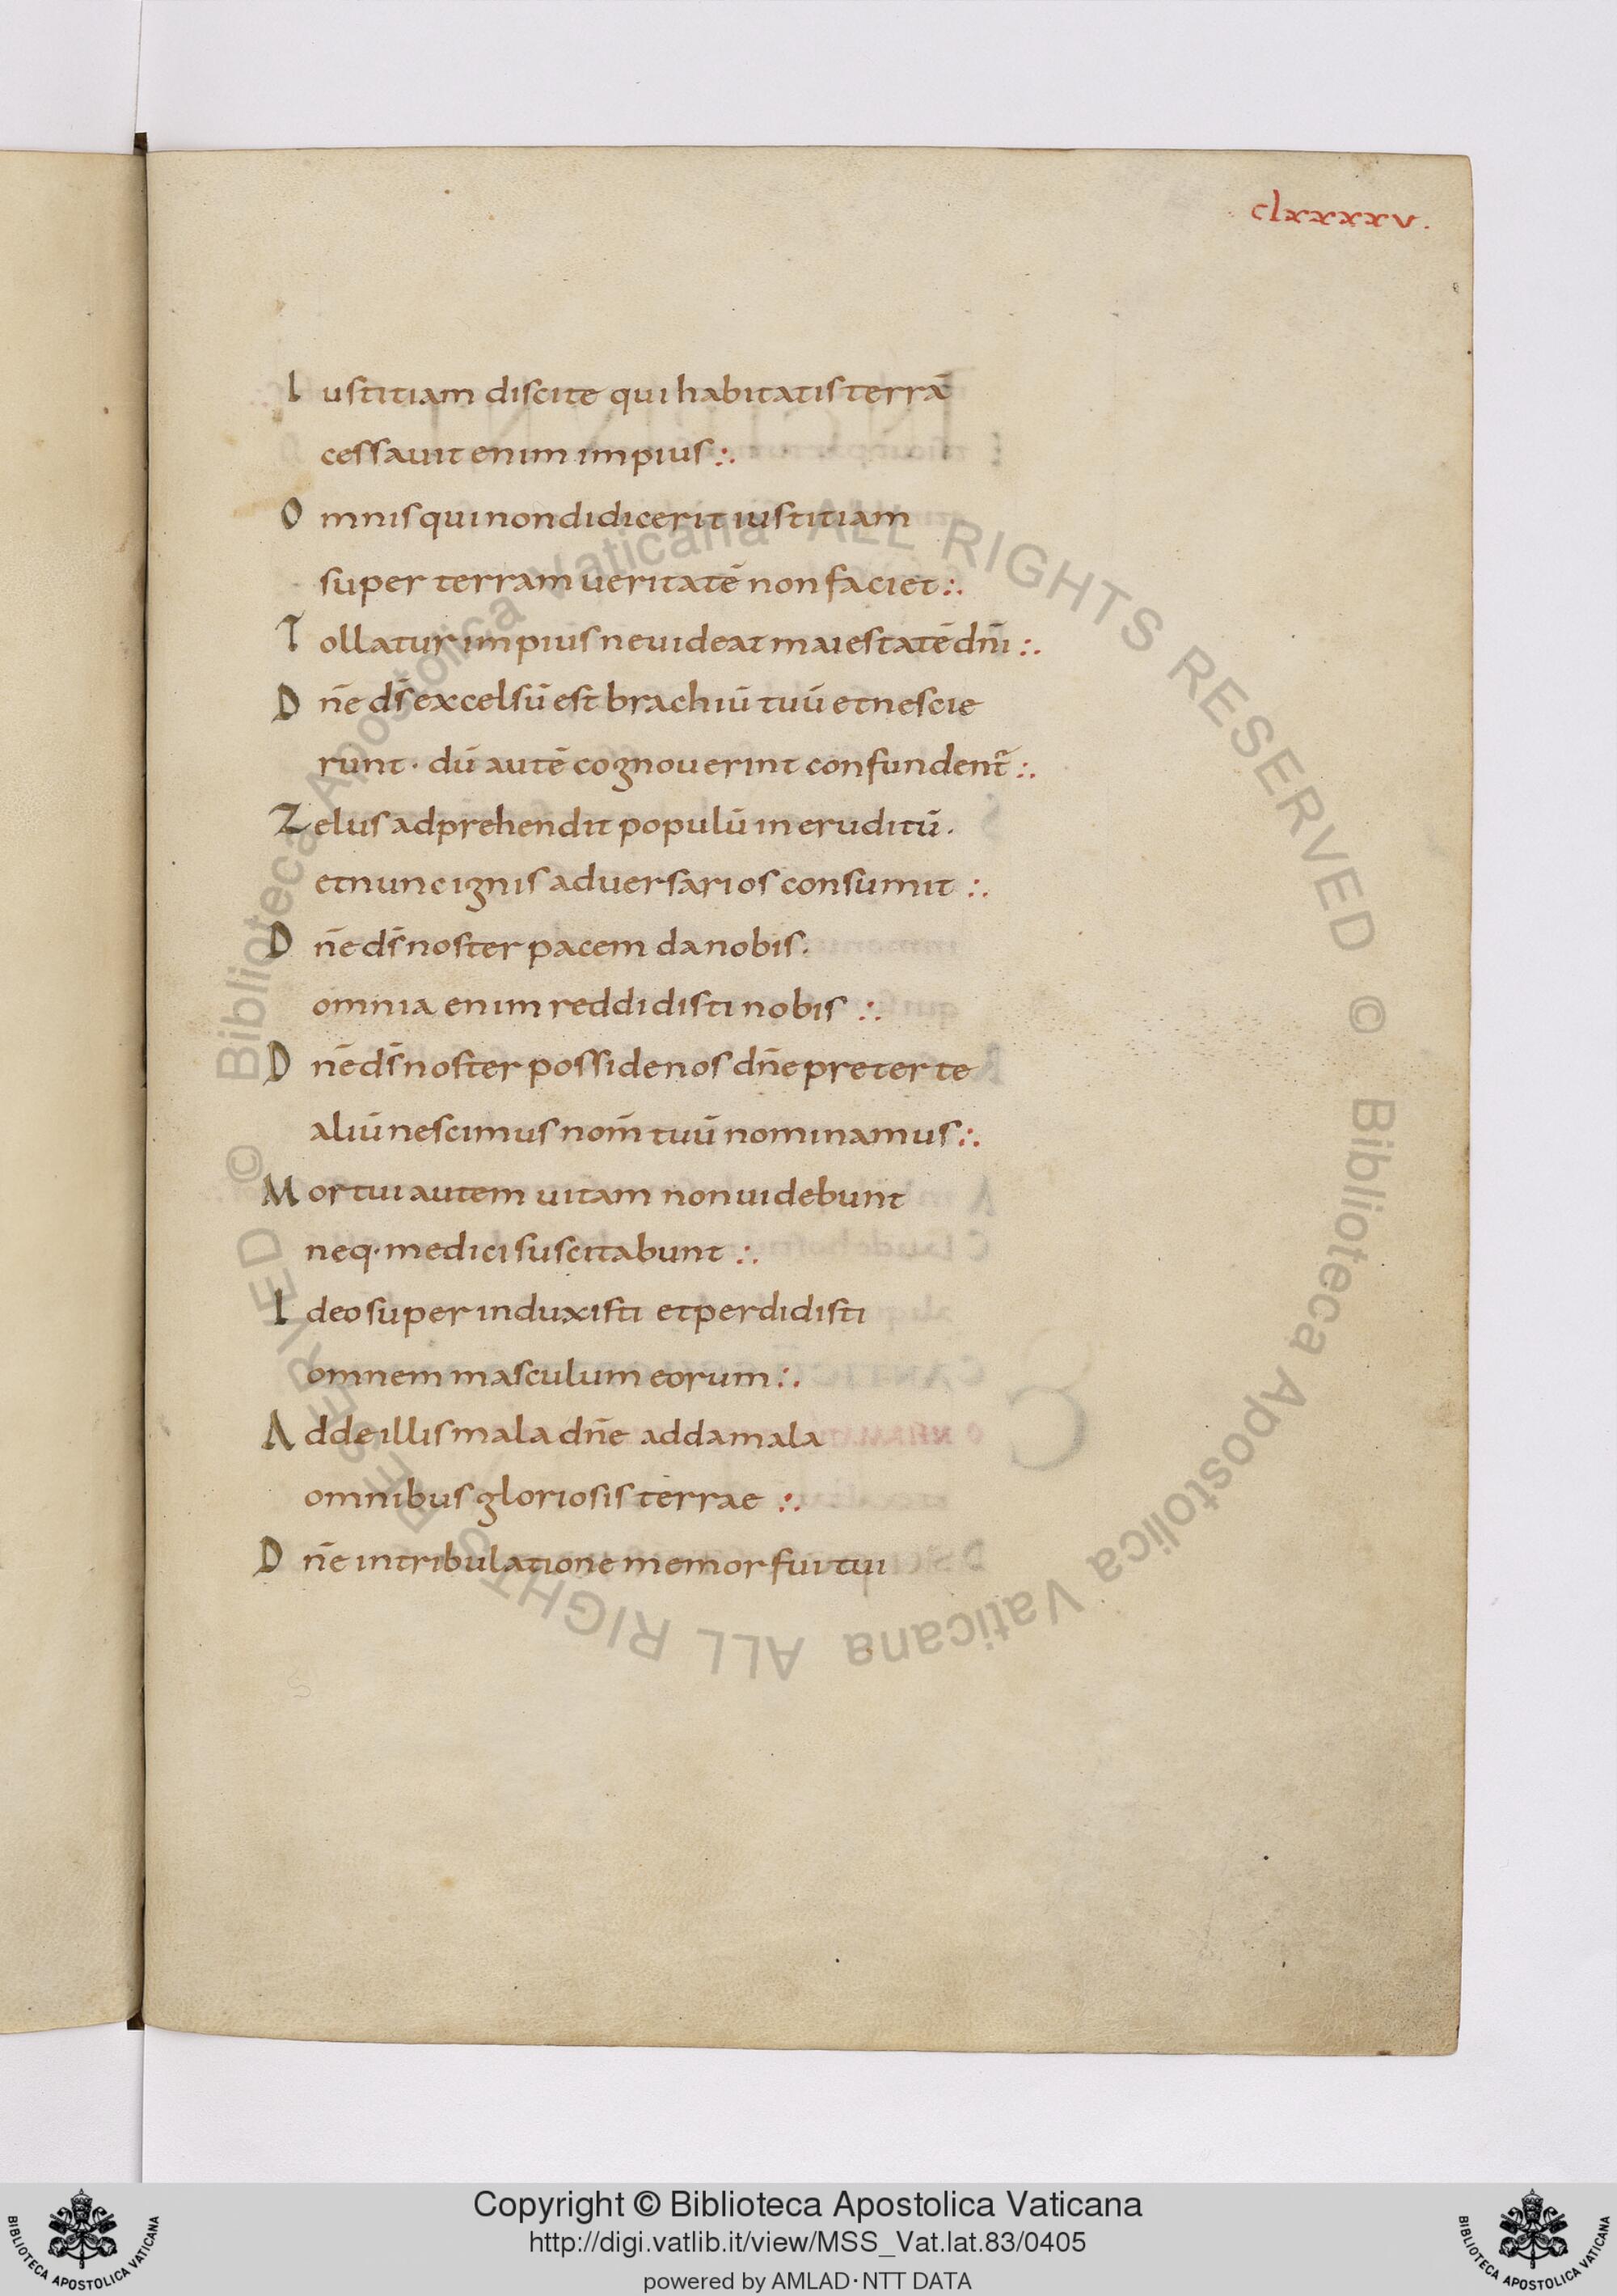 clxxxxv.
Iustitiam discite qui habitatis terrā
cessauit enim impius :.
Omnis qui non didicerit iustitiam
super terram ueritatē non faciet :.
Tollatur impius ne uideat maiestatē dn̄i :.
Dn̄e ds̄ excelsū est brachiū tuū et nescie
runt · dū autē cognouerint confundent̄ :.
Zelus adprehendit populū in eruditū .
et nunc ignis aduersarios consumit :.
Dn̄e ds̄ noster pacem da nobis .
omnia enim reddidisti nobis :.
Dn̄e ds̄ noster posside nos dn̄e preter te
aliū nescimus nom̄ tuū nominamus :.
Mortui autem uitam non uidebunt
neq· medici suscitabunt :.
Ideo super induxisti et perdidisti
omnem masculum eorum :.
Adde illis mala dn̄e adda mala
omnibus gloriosis terrae :.
Dn̄e in tribulatione memor fui tui
© Biblioteca Apostolica Vaticana ALL RIGHTS RESERVED © Biblioteca Apostolica Vaticana ALL RIGHTS RESERVED
Copyright © Biblioteca Apostolica Vaticana
http://digi.vatlib.it/view/MSS_Vat.lat.83/0405
powered by AMLAD·NTT DATA
BIBLIOTECA APOSTOLICA VATICANA
BIBLIOTECA APOSTOLICA VATICANA